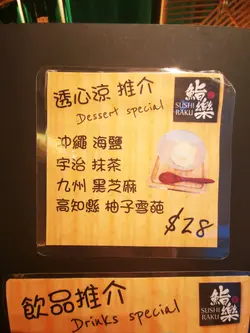 透心涼 推介
Dessert special
鮨樂
SUSHI
RAKU
沖繩 海鹽
宇治 抹茶
九州 黑芝麻
高知縣 柚子雪葩
$28
飲品推介
Drinks special
鮨樂
SUSHI
RAKU